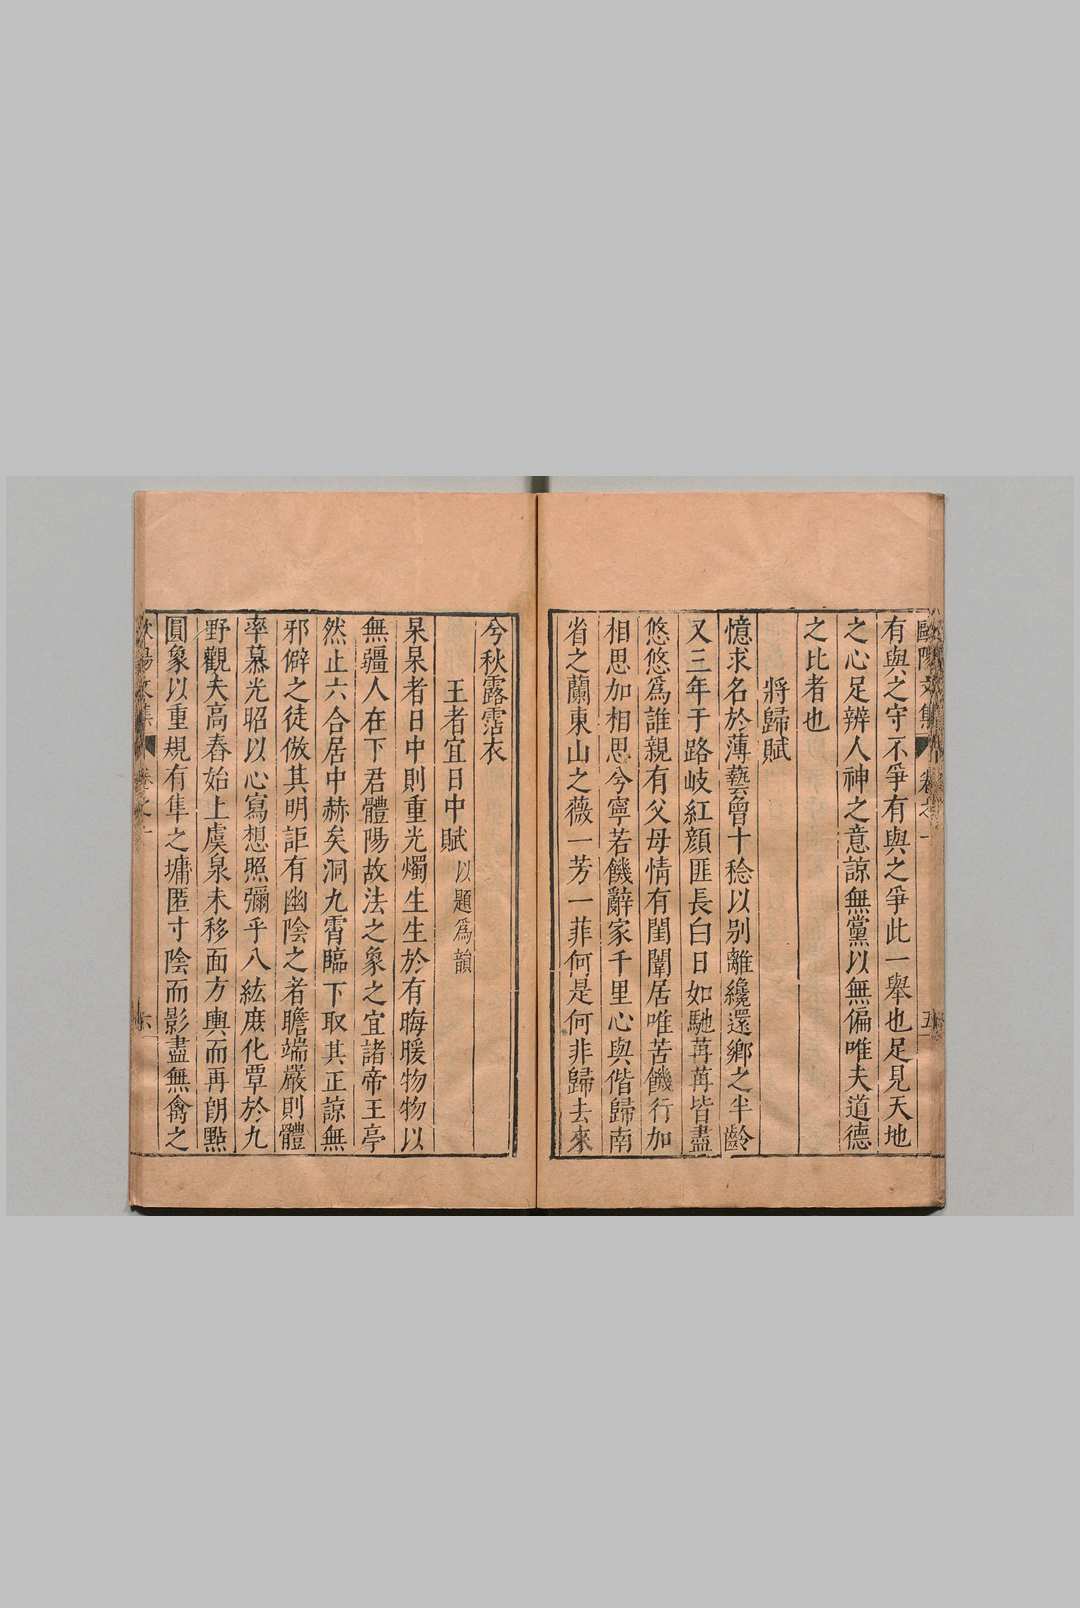 歐陽文集 卷之一 五
有與之守不爭有與之爭此一舉也足見天地
之心足辨人神之意諒無黨以無偏唯夫道德
之比者也
將歸賦
憶求名於薄藝曾十稔以别離纔還鄉之半齡
又三年于路岐紅顔匪長白日如馳苒苒皆盡
悠悠爲誰親有父母情有閨闈居唯苦饑行加
相思加相思兮寧若饑辭家千里心與偕歸南
省之蘭東山之薇一芳一菲何是何非歸去來
兮秋露霑衣
王者宜日中賦 以題爲韻
杲杲者日中則重光燭生生於有晦暖物物以
無疆人在下君體陽故法之象之宜諸帝王亭
然止六合居中赫矣洞九霄臨下取其正諒無
邪僻之徒倣其明詎有幽陰之者瞻端嚴則體
率慕光昭以心寫想照彌乎八紘庶化覃於九
野觀夫高舂始上虞泉未移面方輿而再朗點
圓象以重規有隼之墉匿寸陰而影盡無禽之